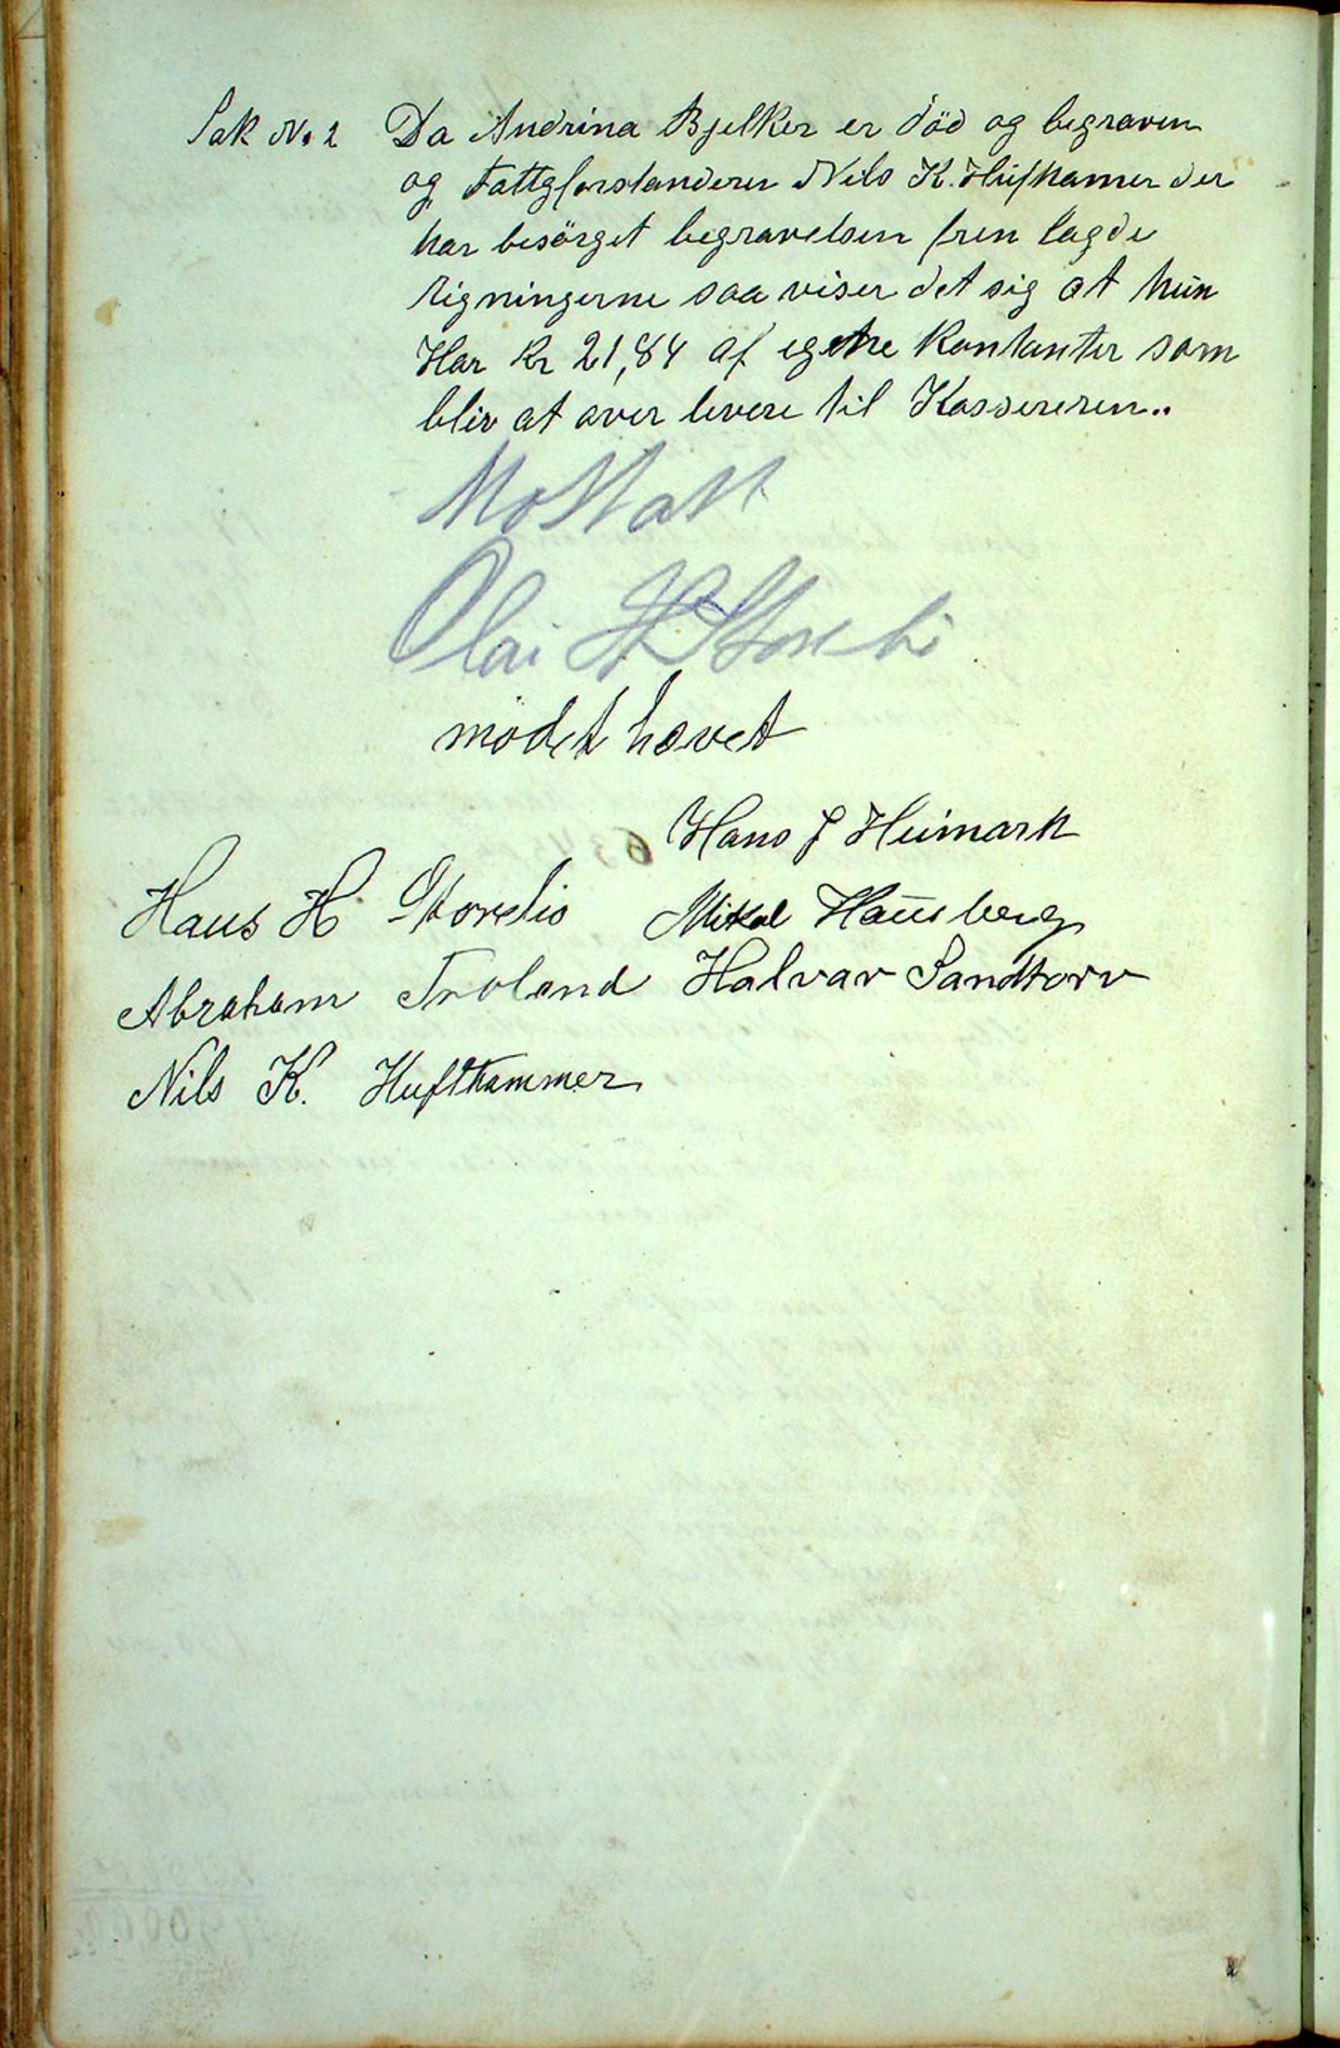 Sak No 2 Da Andrina Bjelker er död og begraven
og Fattgforstanderen Nils K. Hufhamer der
har besörget begravelsen frem lagde
rigningerne saa viser det sig at hun
Har kr 21,84 af egne kontanter som
blir at over levere til Kassereren..
Mottatt
Olai H Storebö
mödet hævet
Hans J Heimark
Hans H Storebö Mikal Hausberg
Abraham Troland Halvar Sandtorv
Nils K. Hufthammer